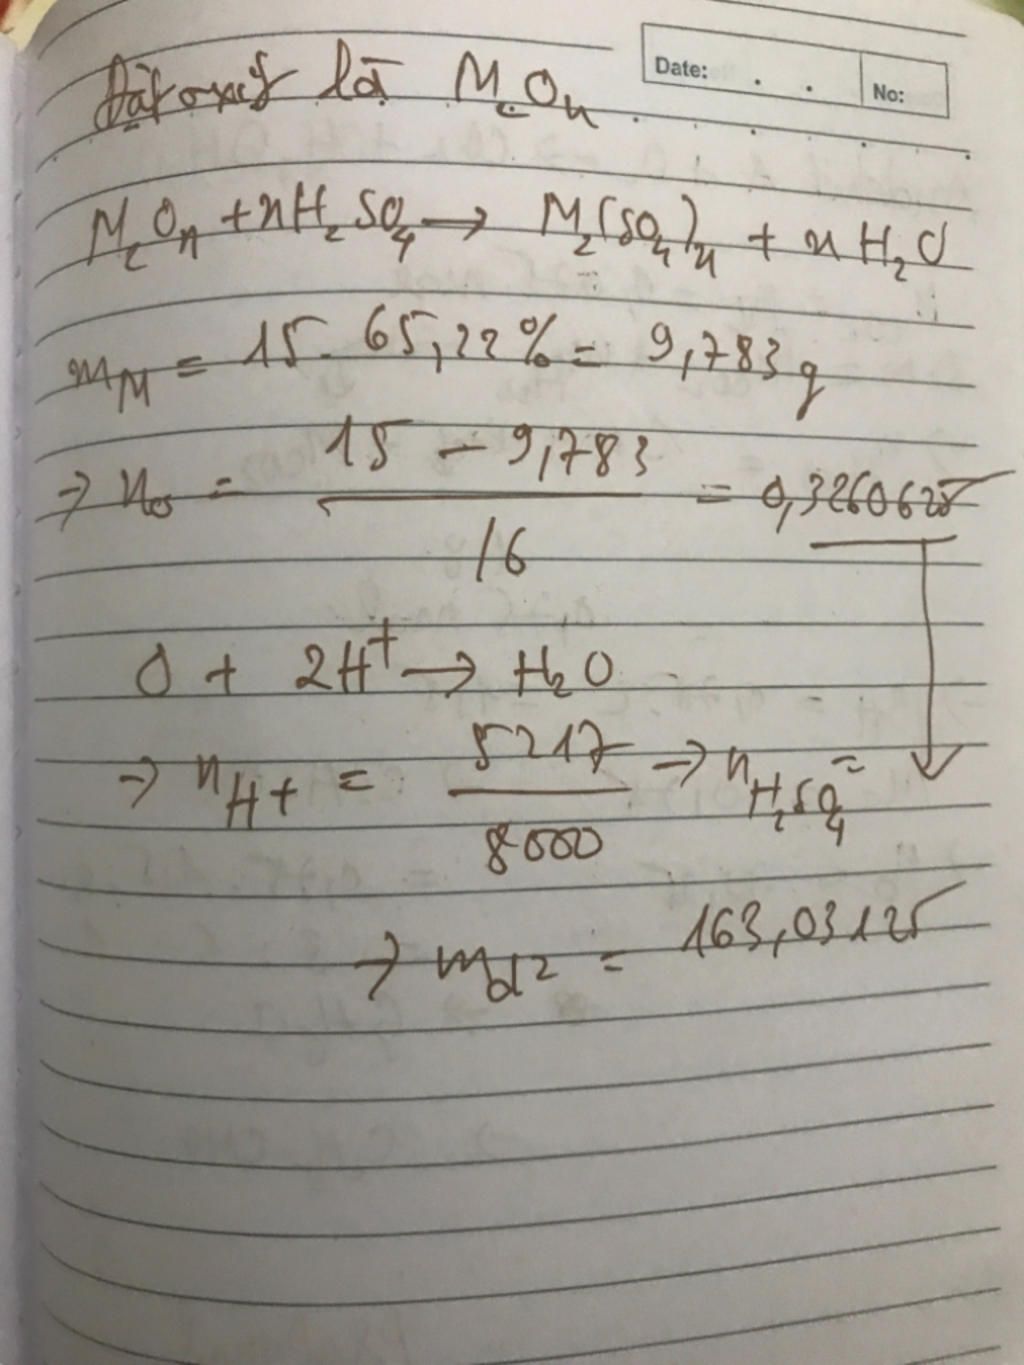 Date: . .
No:
Đặt oxit là M₂Oₙ
M₂Oₙ + nH₂SO₄ → M₂(SO₄)ₙ + nH₂O
m_M = 15. 65,22% = 9,783g
→ n_O = (15 - 9,783)/16 = 0,3260625
O + 2H⁺ → H₂O
→ n_H+ = 5217/8000 → n_H₂SO₄ =
→ m_d2 = 163,03125